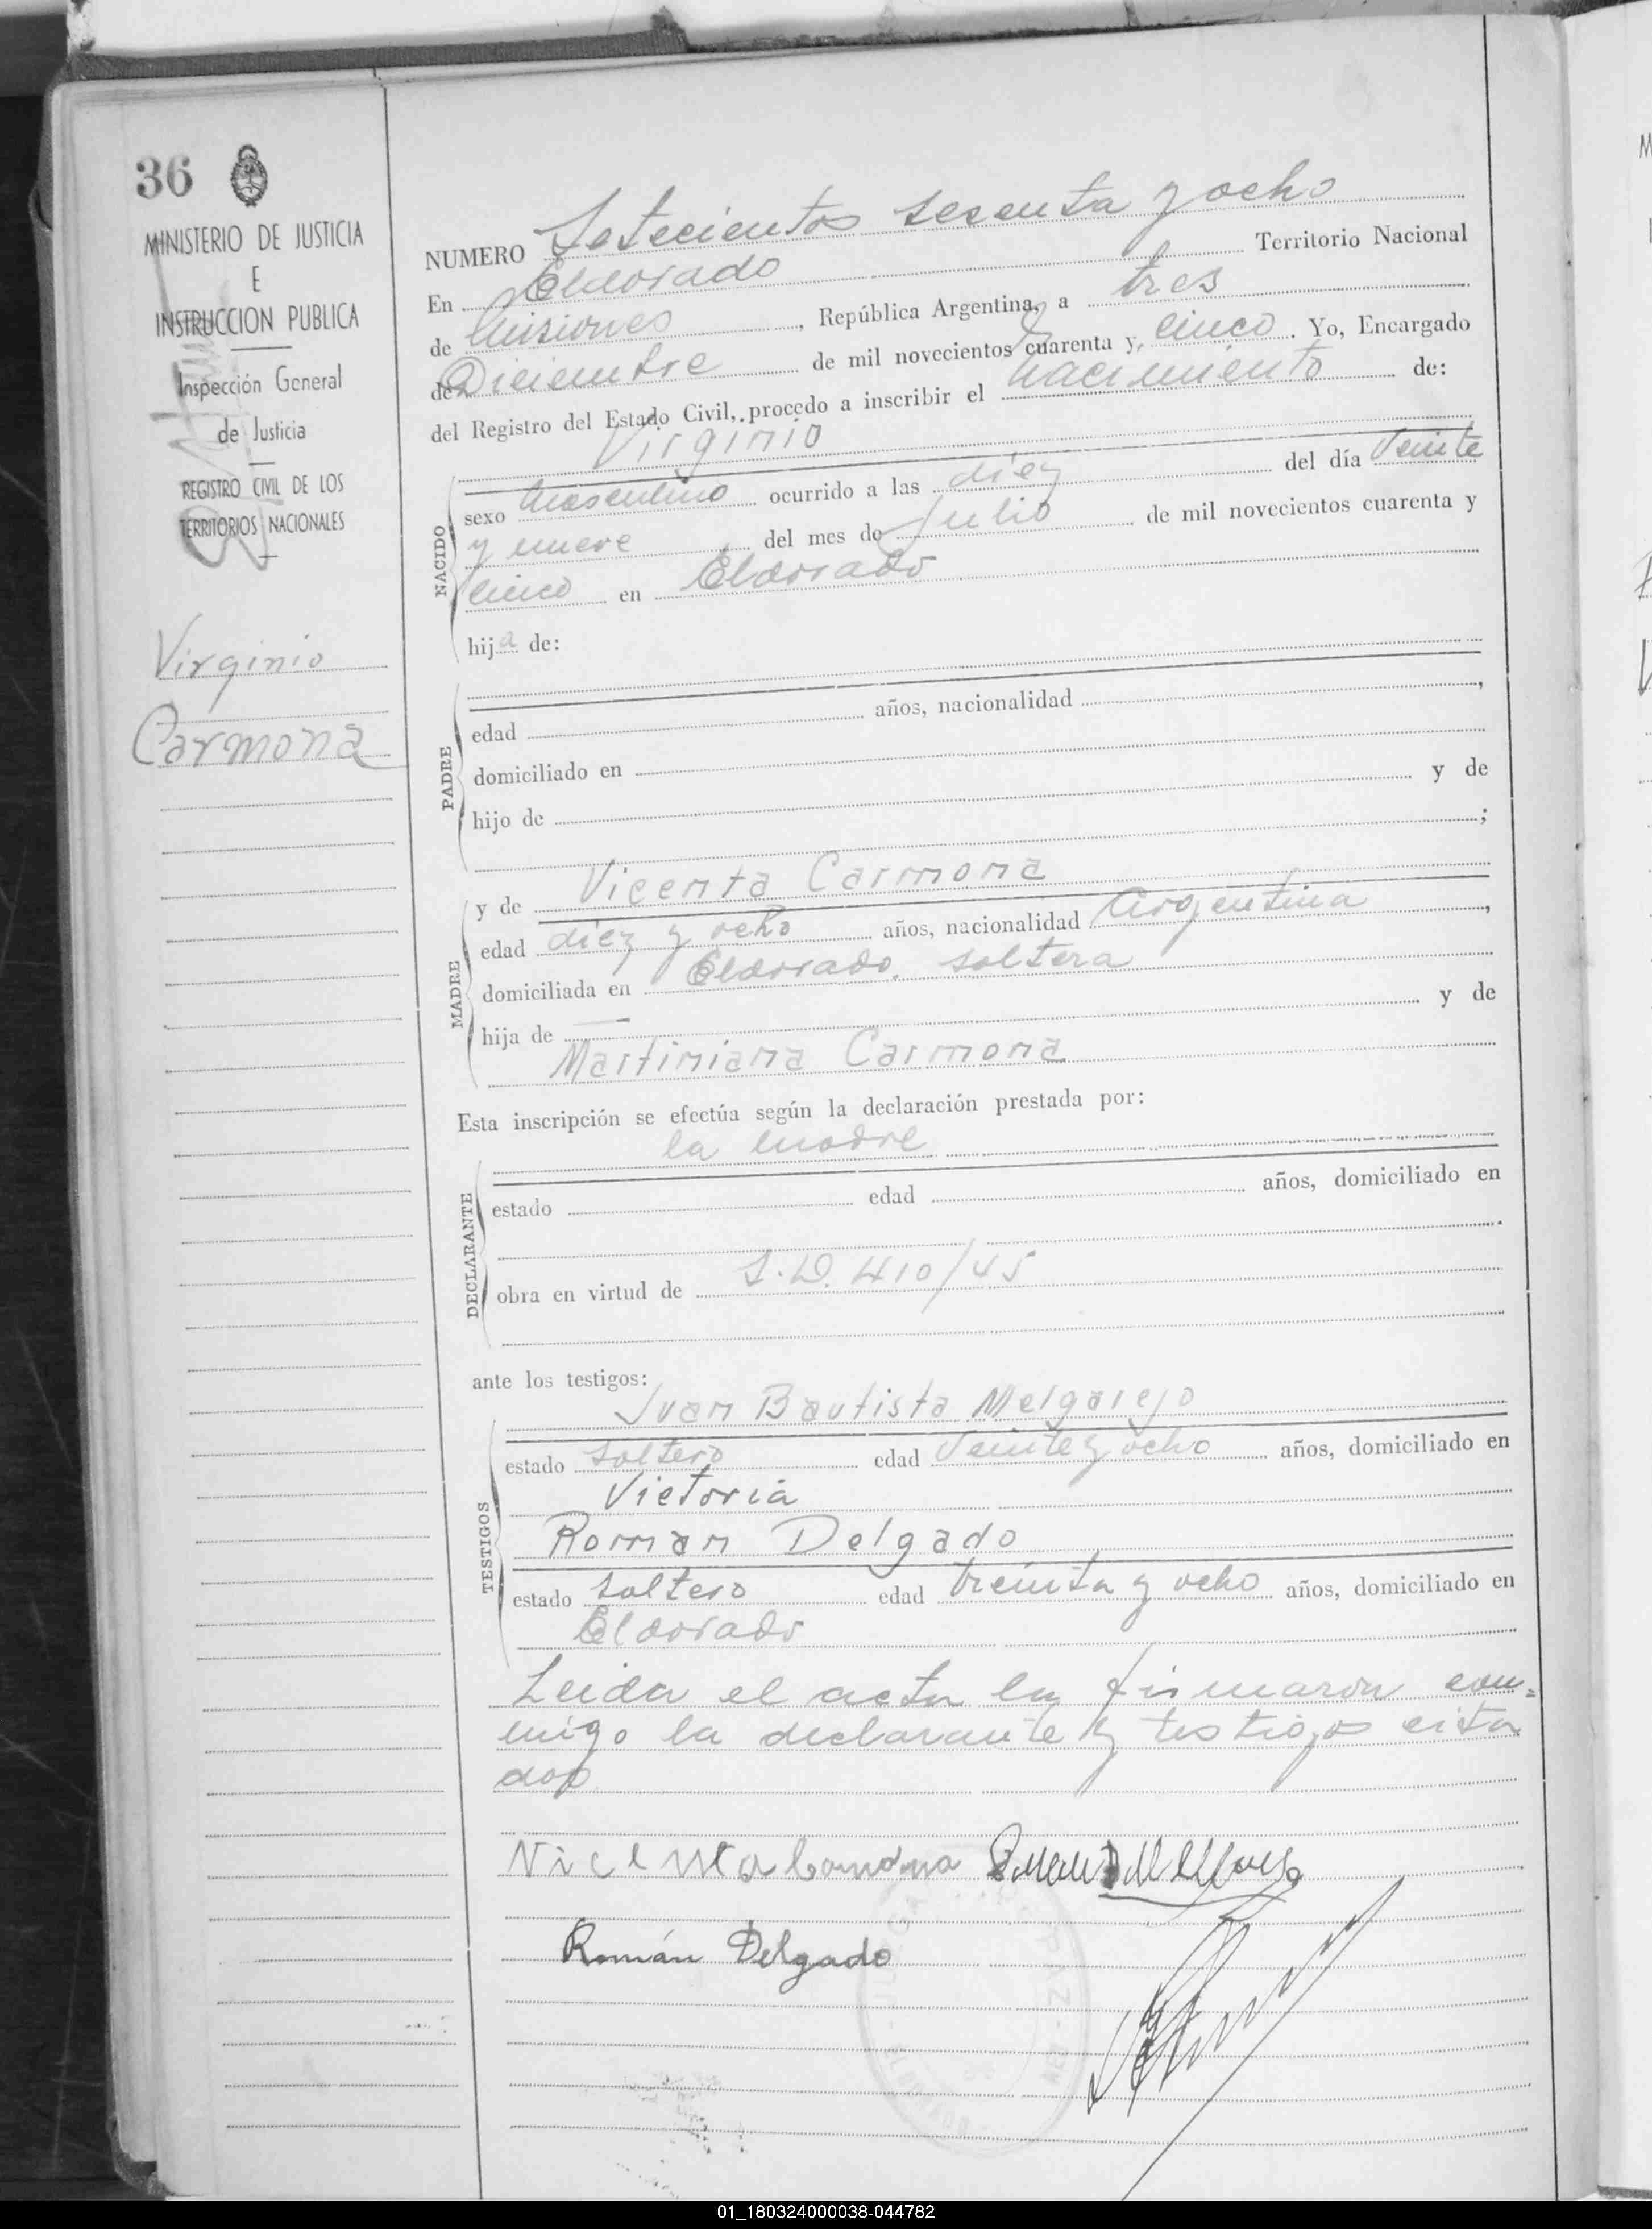 36
MINISTERIO DE JUSTICIA
E
INSTRUCCION PUBLICA
Inspección General
de Justicia
REGISTRO CIVIL DE LOS
TERRITORIOS NACIONALES
Virginio
Carmona
NUMERO Setecientos sesenta y ocho
En Eldorado Territorio Nacional
de Misiones, República Argentina, a tres
de Diciembre de mil novecientos cuarenta y cinco. Yo, Encargado
del Registro del Estado Civil, procedo a inscribir el nacimiento de:
Virginio
NACIDO
sexo masculino ocurrido a las diez del día veinte
y nueve del mes de Julio de mil novecientos cuarenta y
cinco en Eldorado
hija de:
PADRE
edad años, nacionalidad ,
domiciliado en
hijo de y de
;
MADRE
y de Vicenta Carmona
edad diez y ocho años, nacionalidad Argentina,
domiciliada en Eldorado. soltera
hija de — y de
Martiniana Carmona
Esta inscripción se efectúa según la declaración prestada por:
la madre
DECLARANTE
estado edad años, domiciliado en
.
obra en virtud de S.D. 410/45
ante los testigos:
Juan Bautista Melgarejo
TESTIGOS
estado soltero edad veinte y ocho años, domiciliado en
Victoria
Roman Delgado
estado soltero edad treinta y ocho años, domiciliado en
Eldorado
Leida el acta la firmaron con=
migo la declarante y testigos cita
dos
Vicenta Carmona
Román Delgado
01_180324000038-044782